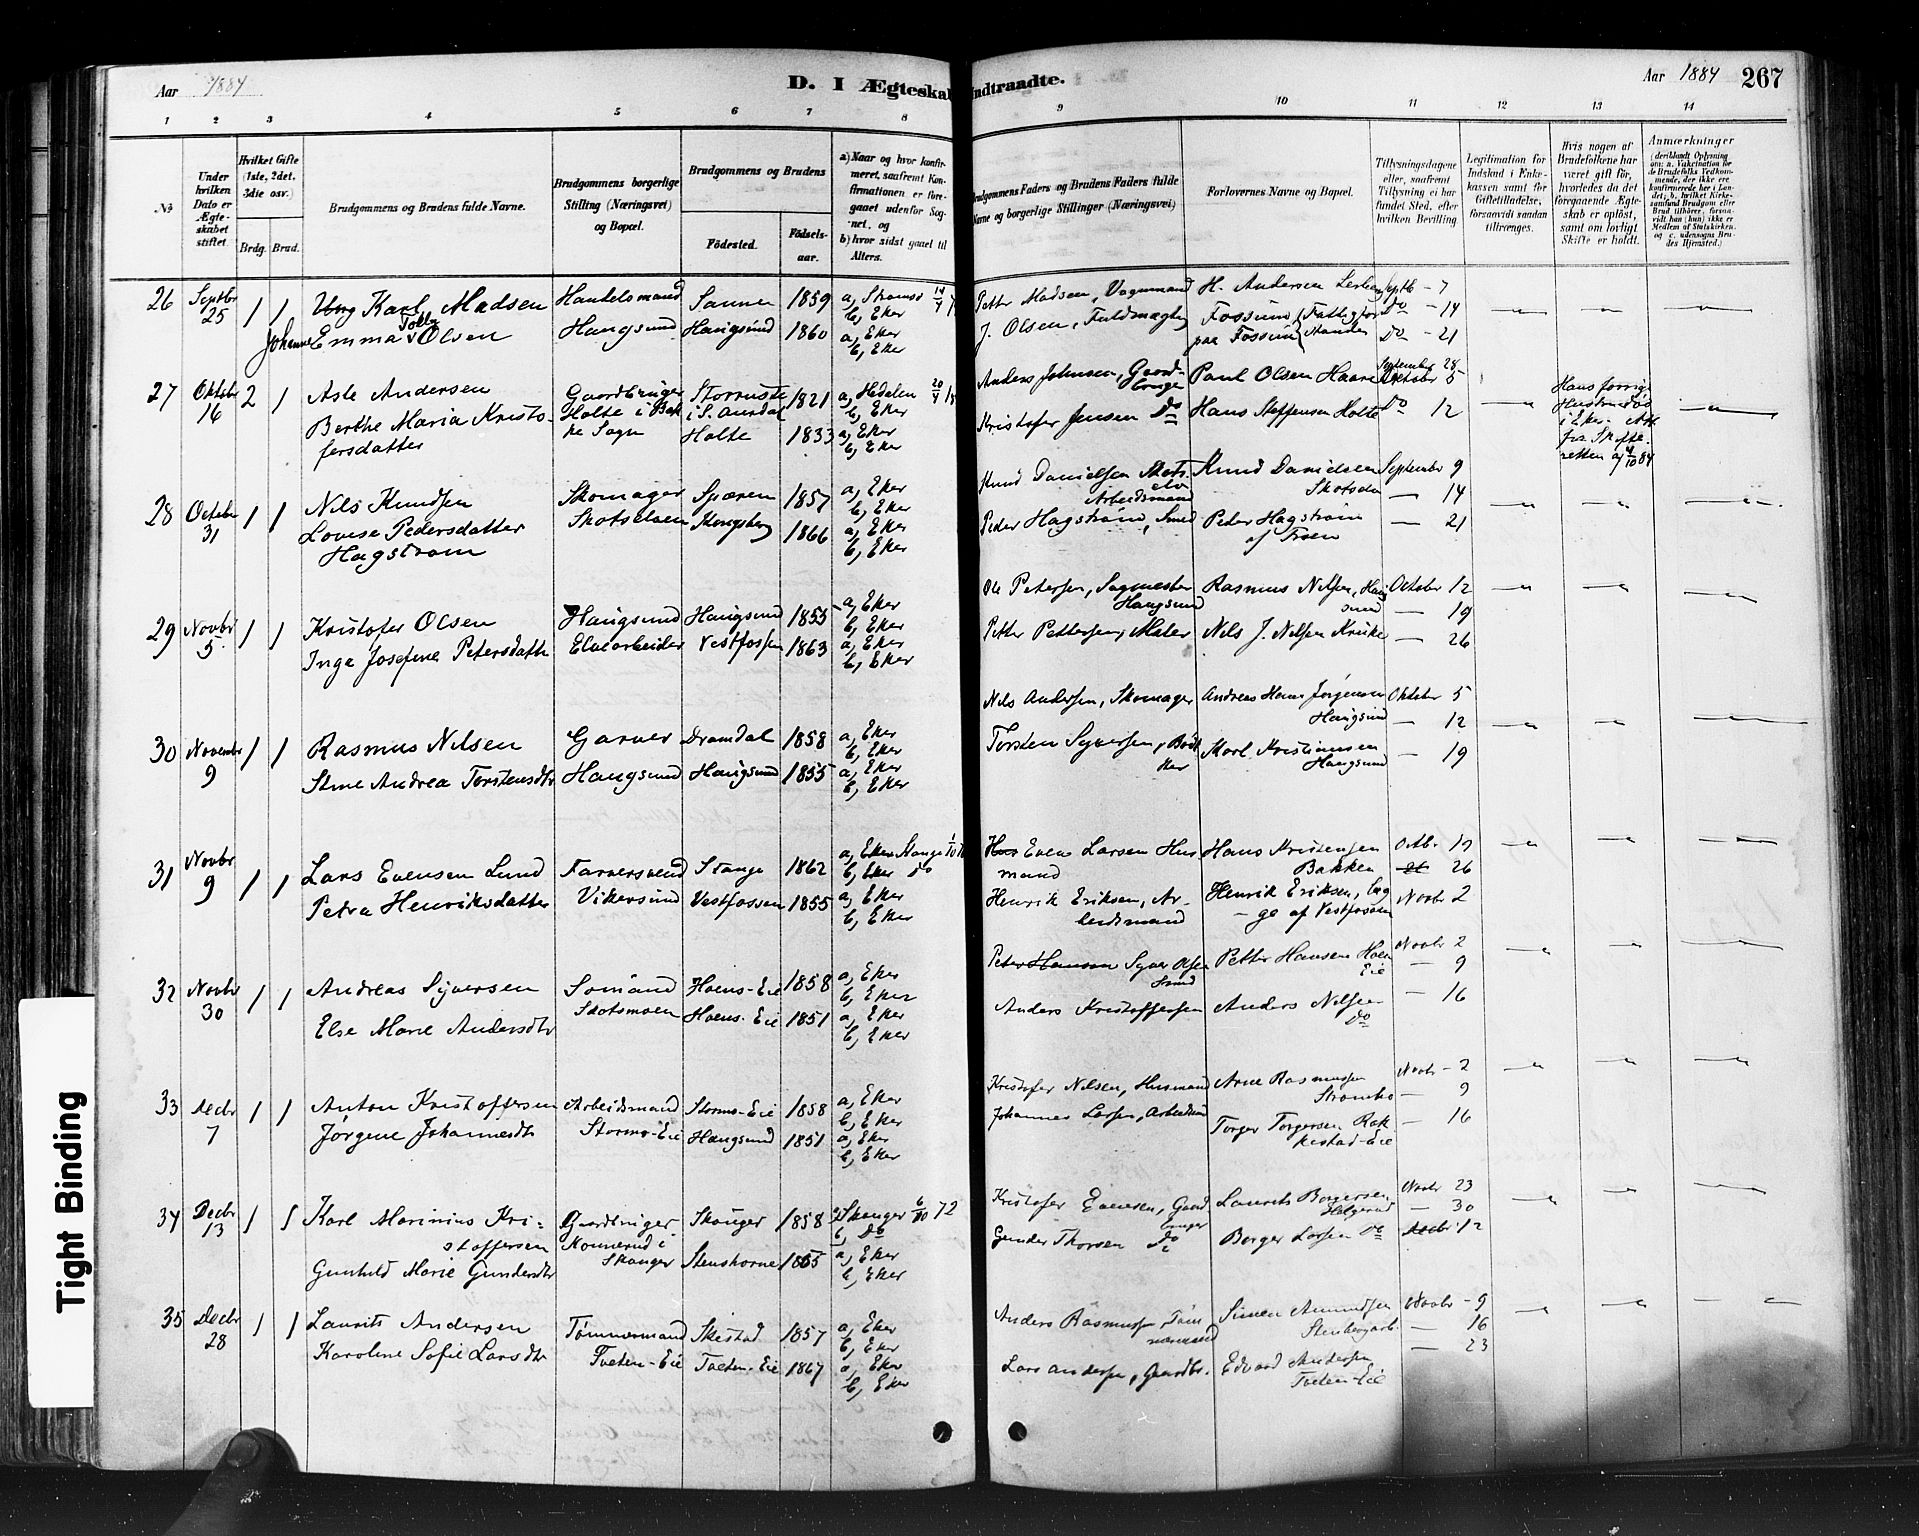 Aar 1884
D. I Ægteskab Indtraadte.
Aar 1884 267
1 2 3 4 5 6 7 8 9 10 11 12 13 14
No.
Under hvilken Dato er Ægteskabet stiftet.
Hvilket Gifte (1ste, 2det, 3die osv.)
Brdg. Brud.
Brudgommens og Brudens fulde Navne.
Brudgommens borgerlige Stilling (Næringsvei) og Bopæl.
Brudgommens og Brudens
Födested.
Födselsaar.
a) Naar og hvor konfirmeret, saafremt Konfirmationen er foregaaet udenfor Sognet, og
b) hvor sidst gaaet til Alters.
Brudgommens Faders og Brudens Faders fulde Navne og borgerlige Stillinger (Næringsvei)
Forlovernes Navne og Bopæl.
Tillysningsdagene eller, saafremt Tillysning ei har fundet Sted, efter hvilken Bevilling
Legitimation for Indskud i Enkekassen samt for Giftetilladelse, forsaavidt saadan tiltrænges.
Hvis nogen af Brudefolkene har været gift för, hvorledes da det foregaaende Ægteskab er oplöst, samt om lovligt Skifte er holdt.
Anmærkninger
26 Septbr 25 1 1 Karl Madsen Handelsmand Sannen 1859 a, Stromsö 14/4
b, Eker
Johanne Emma Olsen Haugsund Haugsund 1860 a, Eker
b, Eker
Petter Madsen, Vognmand H. Andersen Septb - 7
J. Olsen, Fuldmægtig Fossum Do - 14
paa Fossum Do - 21
27 Oktober 16 2 1 Asle Andersen Gaardbruger Storruste 1821 a, Hedalen 20/4
Holte i Bakke Sogn i S. Aurdal b, Eker
Berthe Maria Kristofersdatter Holte 1833 a, Eker
b, Eker
Anders Johnsen, Gaardbruger Paul Olsen Haare September 28
Oktober 5
Kristofer Jensen Do Hans Steffensen Holte Do 12
Hans forrige Hustru död i Eker. Att. fra Skifteretten af 4/10 84
28 October 31 1 1 Nils Knudsen Skomager Spæren 1857 a, Eker
b, Eker
Lovise Pedersdatter Hagstrøm Skotselven Kongsberg 1866 a, Eker
b, Eker
Knud Danielsen Skotselv Arbeidsmand Knud Danielsen Skotselv September 9
- 14
Peder Hagstrøm, Smed Peder Hagstrøm - 21
29 Novbr 5 1 1 Kristofer Olsen Haugsund Haugsund 1855 a, Eker
b, Eker
Inge Josefine Petersdattr Elvearbeider Vestfossen 1863 a, Eker
b, Eker
Ole Petersen, Sagmester Haugsund Rasmus Nilsen, Haugsund October 12
- 19
Petter Pettersen, Maler Nils J. Nilsen Kruke - 26
30 November 9 1 1 Rasmus Nilsen Garver Dramdal 1858 a, Eker
b, Eker
Stine Andrea Torstensdtr Haugsund Haugsund 1855 a, Eker
b, Eker
Nils Andersen, Skomager Andreas Hans Jørgensen Haugsund Oktober 5
- 12
Torsten Syversen, Bödker Karl Kristiansen Haugsund - 19
31 Novbr 9 1 1 Lars Evensen Lund Farversvend Stange 1862 a, Eker Stange
b, Eker Do
Petra Henriksdatter Vikersund Vestfossen 1855 a, Eker
b, Eker
Even Larsen Husmand Hans Kristensen Bakken Octbr 19
26
Henrik Eriksen, Arbeidsmand Henrik Eriksen, af Vestfossen Novbr 2
32 Novbr 30 1 1 Andreas Syversen Sömand Hoens-Eie 1858 a, Eker
b, Eker
Else Marie Andersdtr Skotsmoen Hoens-Eie 1851 a, Eker
b, Eker
Peter Hansen Syver Olsen Smed Petter Hansen Hoen Eie Novbr 2
- 9
Anders Kristoffersen Anders Nilsen Do - 16
33 Decbr 7 1 1 Anton Kristoffersen Arbeidsmand Stormo-Eie 1858 a, Eker
b, Eker
Jørgine Johannesdtr Stormo-Eie Haugsund 1851 a, Eker
b, Eker
Kristofer Nilsen, Husmand Arne Rasmussen Strømbo Novbr - 2
- 9
Johannes Larsen, Arbeidsm Torger Torgersen Rakkestad-Eie - 16
34 Decbr 13 1 1 Karl Marinius Kristoffersen Gaardbruger Skauger 1858 a, Skauger 6/10 72
b, Do
Gunhild Marie Gundersdtr Konnerud i Skauger Stenshorne 1865 a, Eker
b, Eker
Kristofer Evensen, Gaardbruger Laurits Borgersen Novbr 23
- 30
Gunder Thorsen Do Borger Larsen Do Decbr 12
35 Decbr 28 1 1 Laurits Andersen Tømmermand Skistad 1857 a, Eker
b, Eker
Karoline Sofie Larsdtr Tveten-Eie Tveten-Eie 1867 a, Eker
b, Eker
Anders Rasmussen Tømmermand Simen Amundsen Novbr - 9
- 16
Lars Andersen, Gaardbr. Edvard Andersen Tveten-Eie - 23
Tight Binding